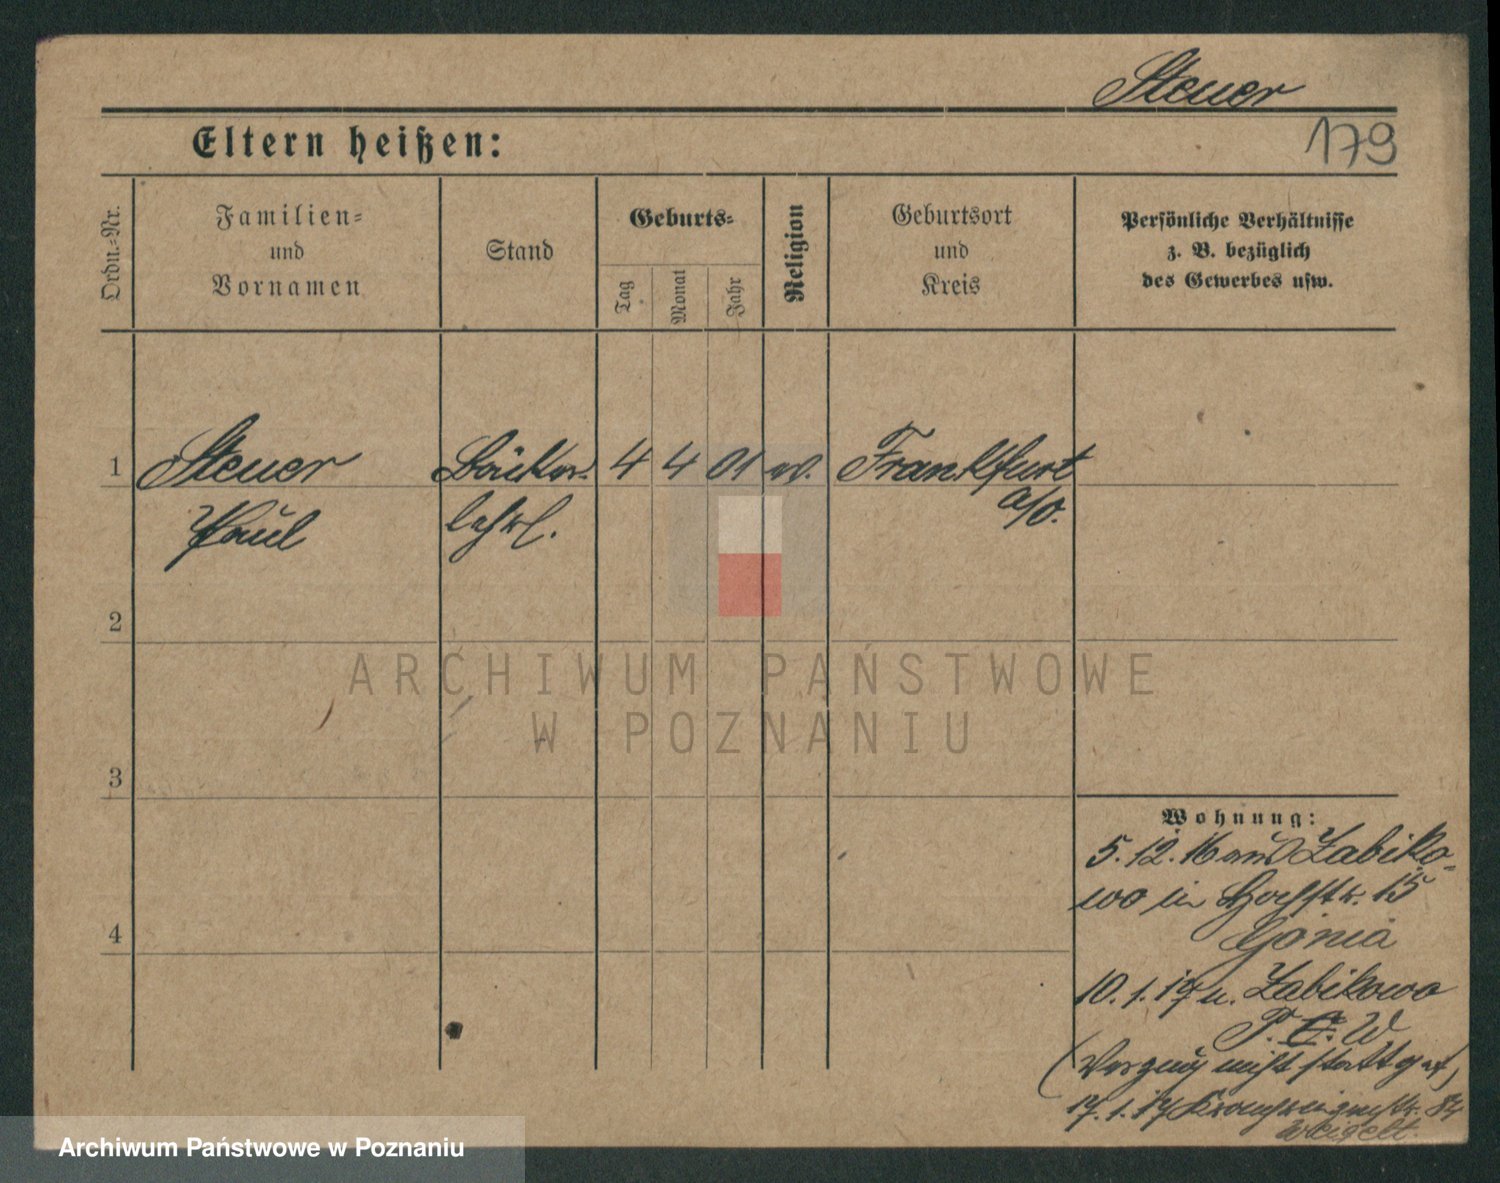 Steuer
179
Eltern heißen:
Ordn.-Nr.
Familien-
und
Vornamen
Stand
Geburts-
Tag
Monat
Jahr
Religion
Geburtsort
und
Kreis
Persönliche Verhältnisse
z. B. bezüglich
des Gewerbes usw.
1 Steuer Bäcker- 4 4 01 ev. Frankfurt
Paul lehrl. a/O.
2
3
4
ARCHIWUM PAŃSTWOWE
W POZNANIU
Wohnung:
5.12.16 aus Zabiko-
wo in Hochstr. 15
Gónia
10.1.17 n. Zabikowo
P. O. W
(Verzug nicht stattgef)
17.1.17 84
Weigelt.
Archiwum Państwowe w Poznaniu